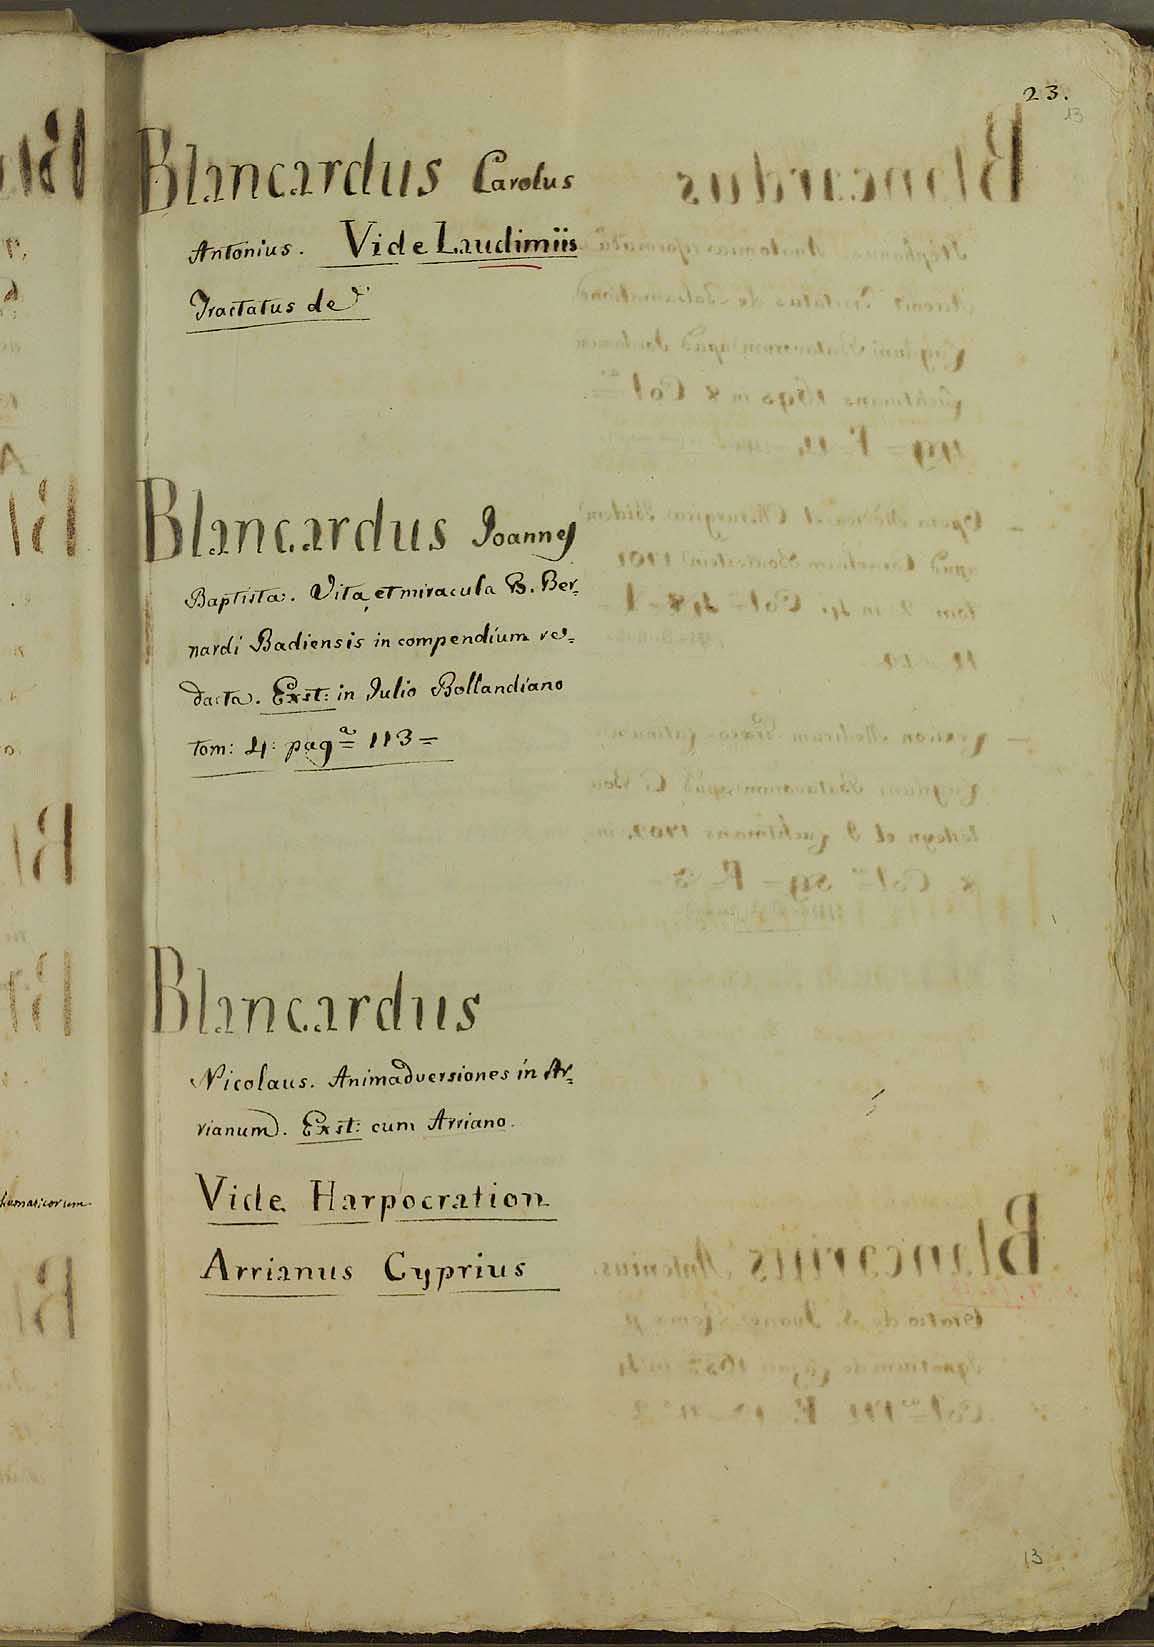 23.
13
Blancardus Carolus
Antonius. Vide Laudimiis
Tractatus de
Blancardus Joannes
Baptista. Vita, et miracula B. Ber=
nardi Badiensis in compendium re=
dacta. Exst: in Julio Bollandiano
tom: 4: pag.ª 113=
Blancardus
Nicolaus. Animadversiones in Ar=
rianum. Exst: cum Arriano.
Vide Harpocration
Arrianus Cyprius
13